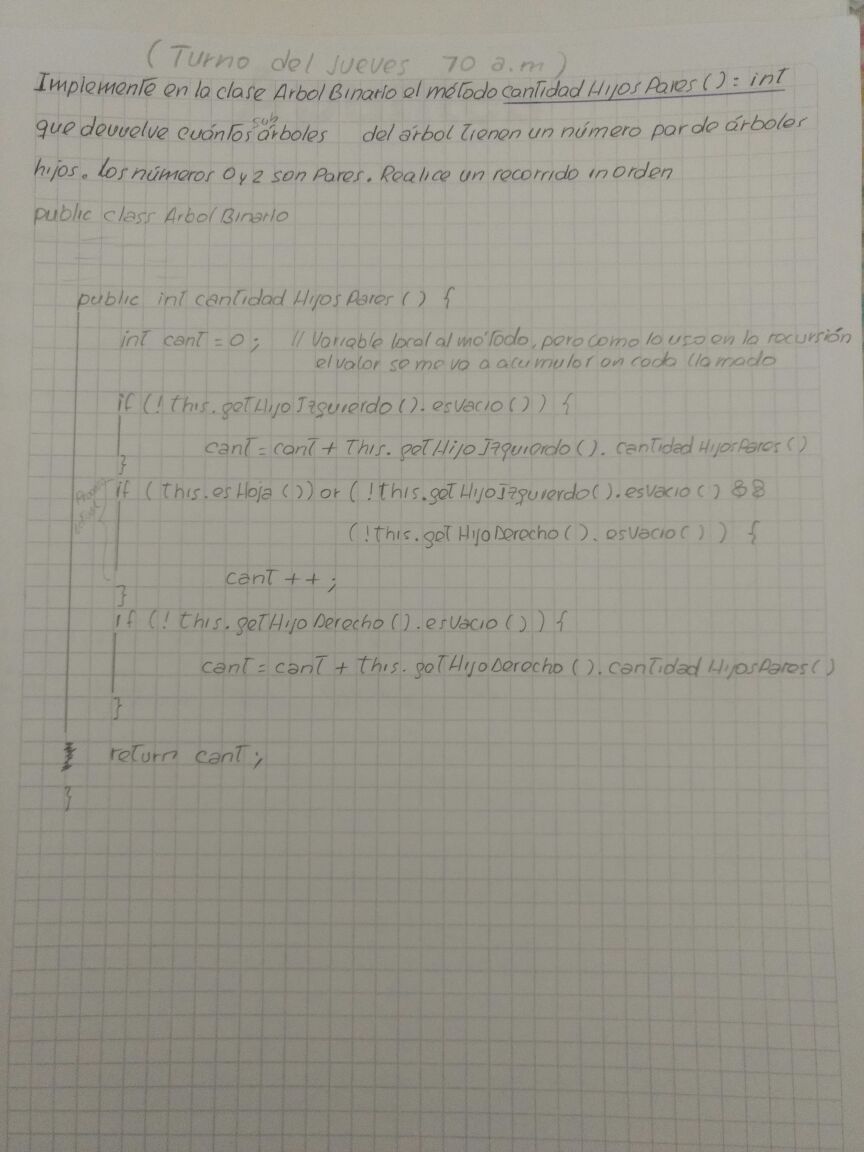 (Turno del jueves 10 a.m)
Implemente en la clase ArbolBinario el método cantidadHijosPares() : int
que devuelve cuántos subárboles del árbol tienen un número par de árboles
hijos. Los números 0 y 2 son Pares. Realice un recorrido inorden
public class ArbolBinario
public int cantidadHijosPares() {
int cant = 0; // Variable local al método, pero como lo uso en la recursión
el valor se me va a acumular en cada llamado
if (! this.getHijoIzquierdo().esVacio()) {
cant = cant + This.getHijoIzquierdo().cantidadHijosPares()
}
if (this.esHoja()) or (!this.getHijoIzquierdo().esVacio() &&
(!this.getHijoDerecho().esVacio()) {
cant ++;
}
if (! this.getHijoDerecho().esVacio()) {
cant = cant + this.getHijoDerecho().cantidadHijosPares()
}
return cant;
}